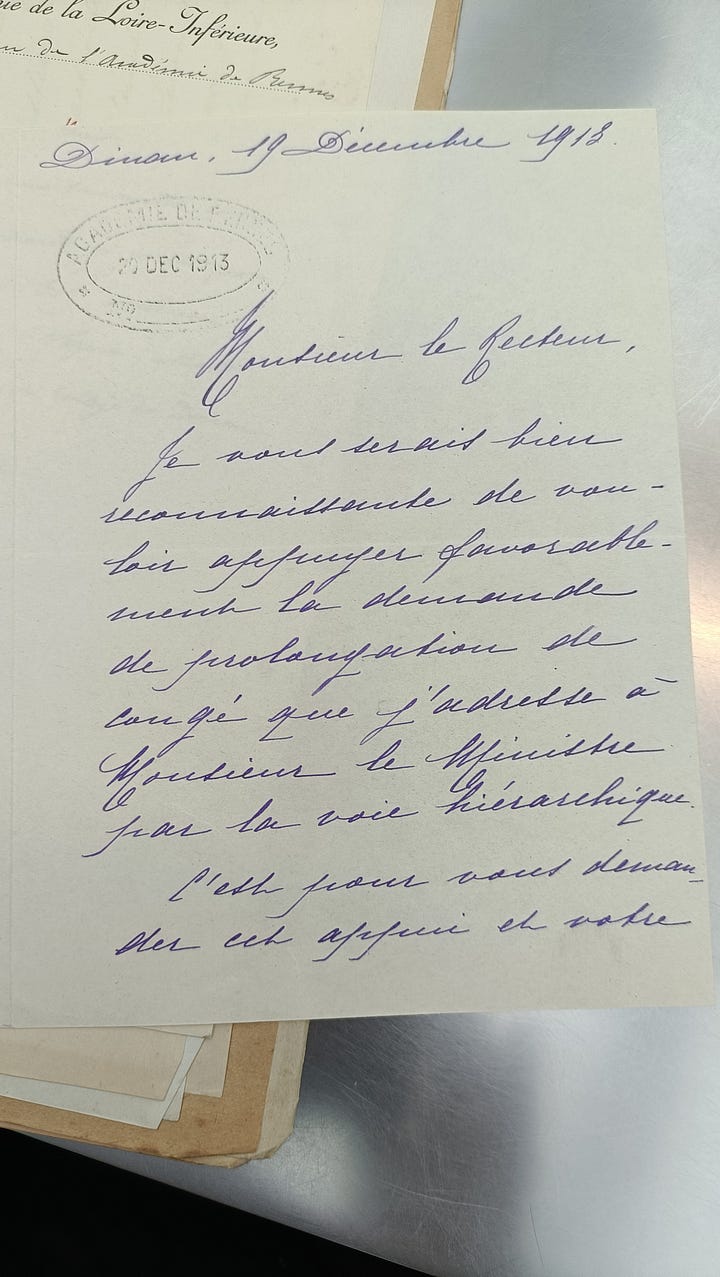 de la Loire-Inférieure,
de l'Académie de Rennes
Dinan, 19 Décembre 1913.
ACADÉMIE DE RENNES
20 DEC 1913
No
Monsieur le Recteur,
Je vous serais bien
reconnaissante de vou-
loir appuyer favorable-
ment la demande
de prolongation de
congé que j'adresse à
Monsieur le Ministre
par la voie hiérarchique.
C'est pour vous deman-
der cet appui et votre